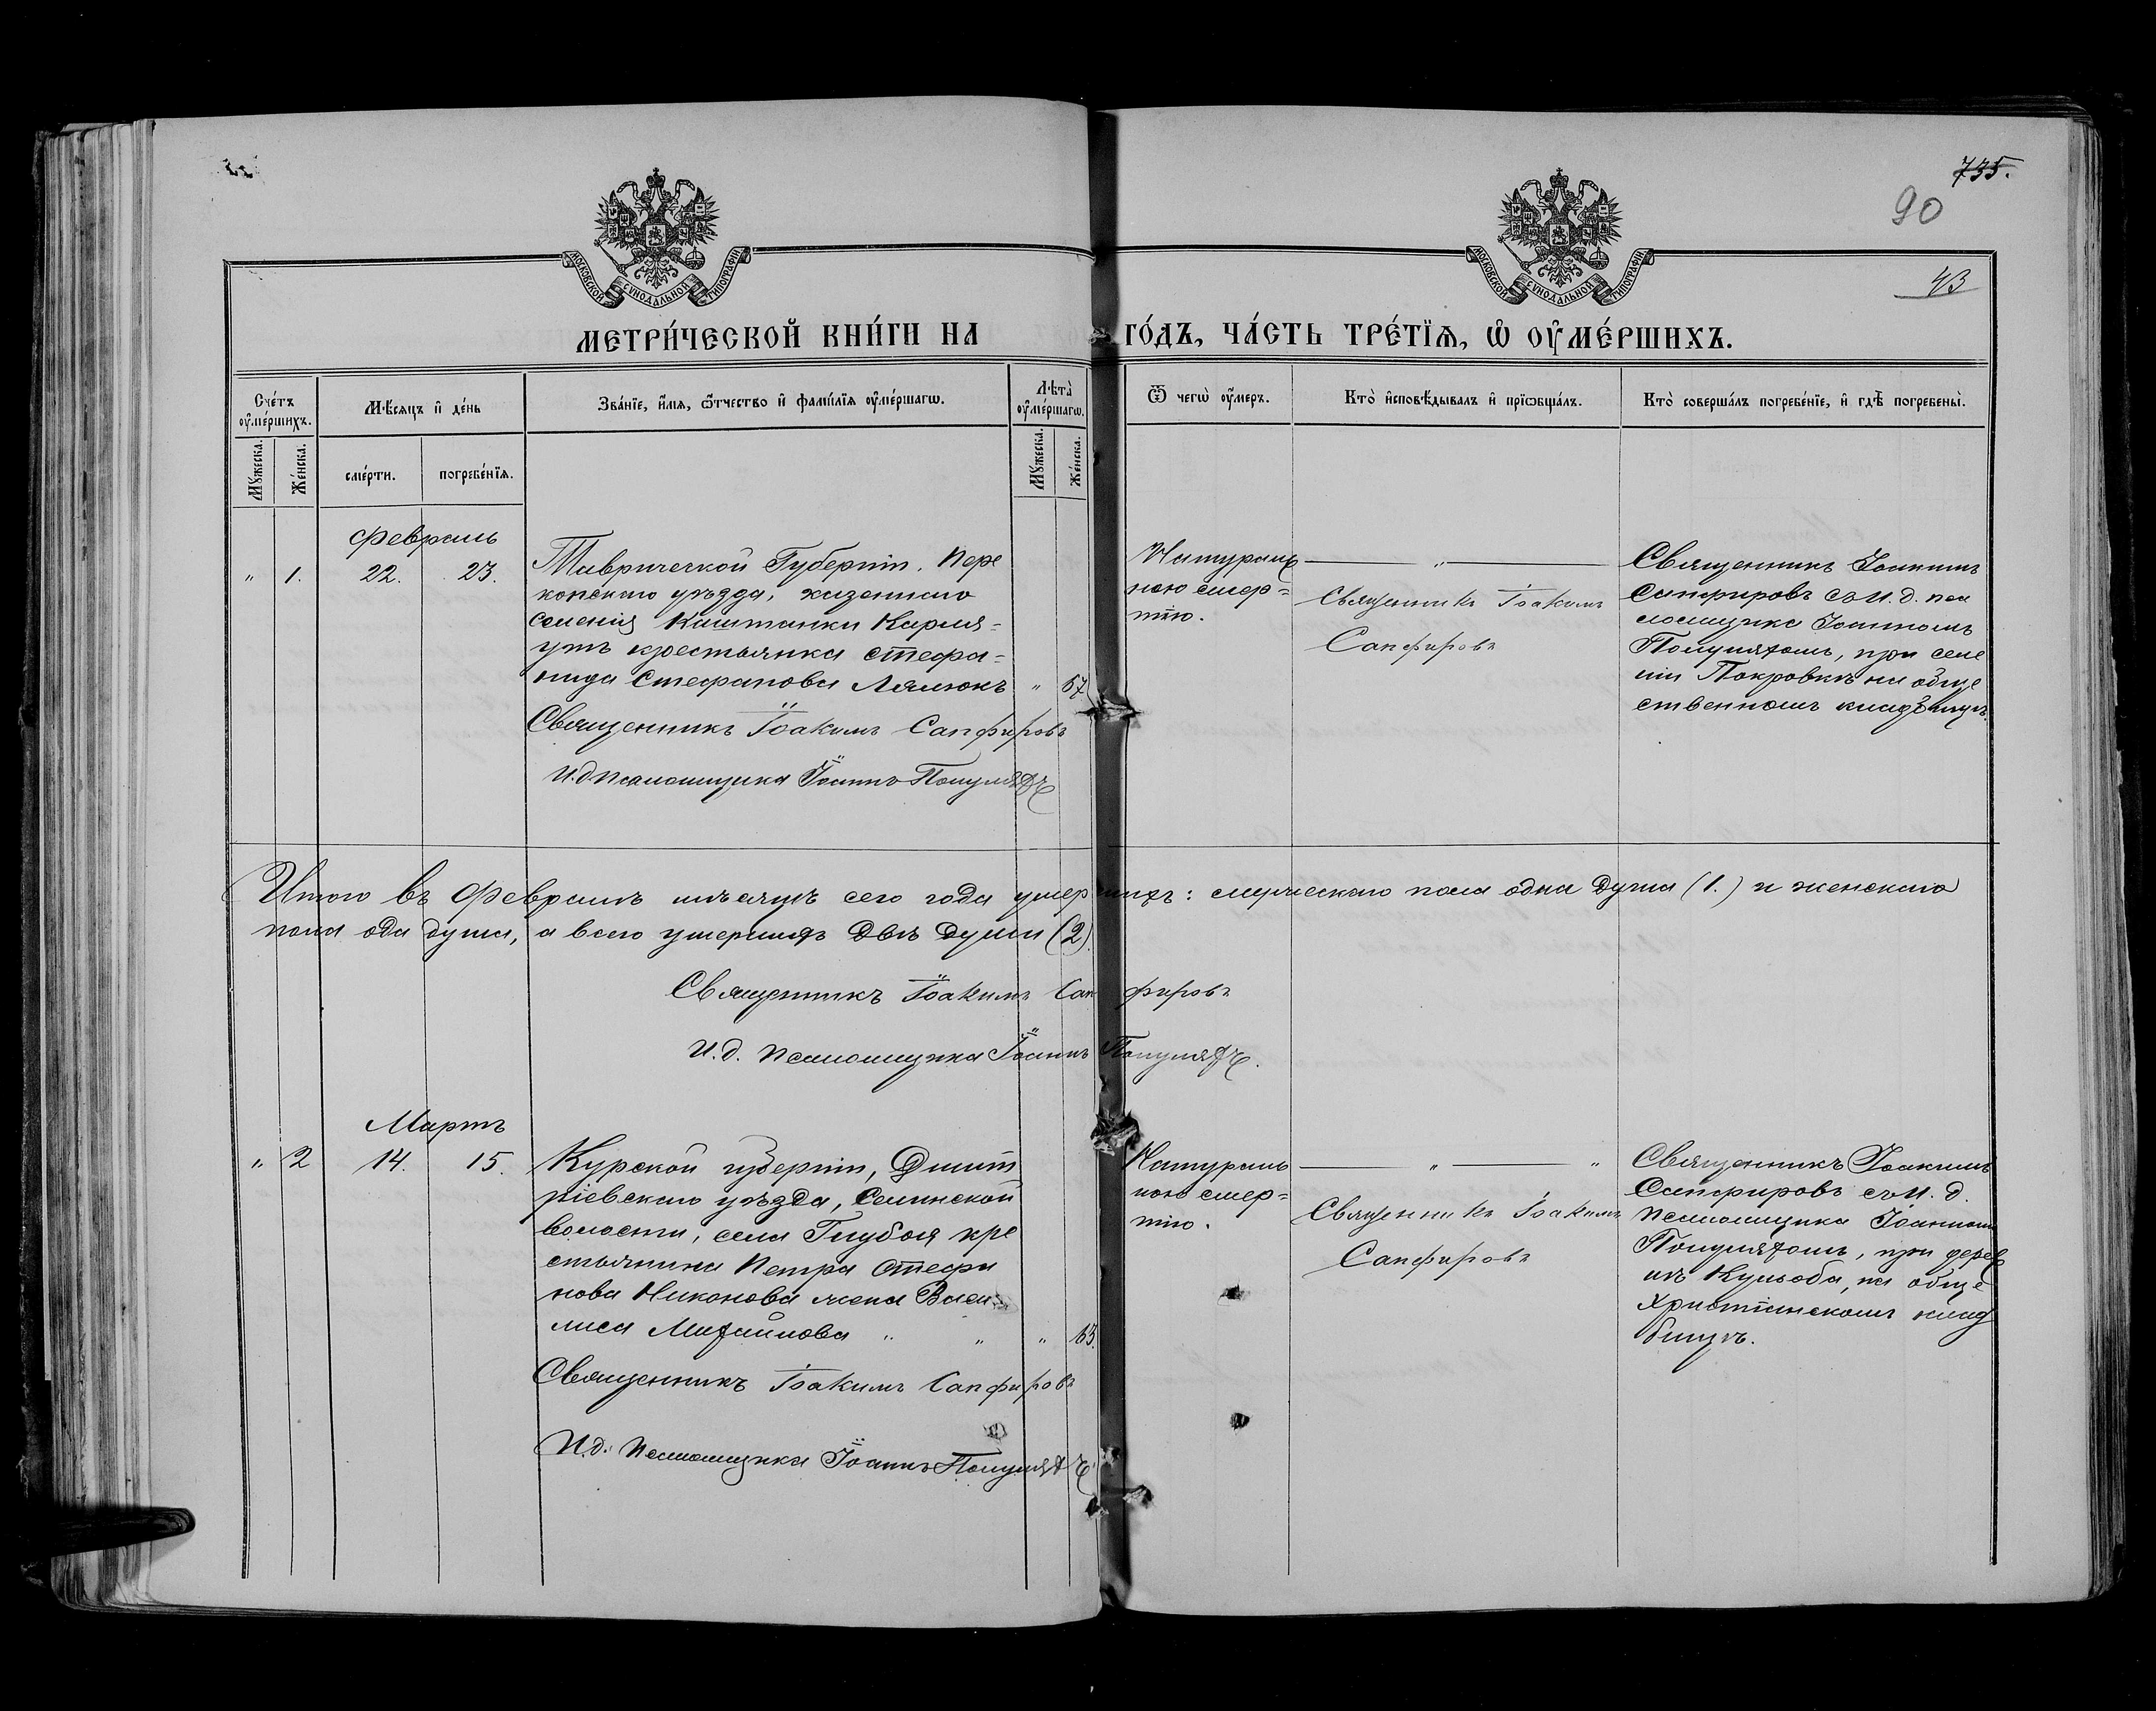 735.
90
43
МОСКОВСКОЙ СѴНОДАЛЬНОЙ ТИПОГРАФІИ
МОСКОВСКОЙ СѴНОДАЛЬНОЙ ТИПОГРАФІИ
МЕТРИ́ЧЕСКОЙ КНИ́ГИ НА ГО́ДЪ, ЧА́СТЬ ТРЕ́ТЇѦ, Ѡ҆ ОУ҆МЕ́РШИХЪ.
Сче́тъ оу҆ме́ршихъ.
Мꙋ́жеска.
Же́нска.
Мѣ́сѧцъ и҆ де́нь
сме́рти.
погребе́нїѧ.
Зва́нїе, и҆́мѧ, ѻ҆́тчество и҆ фамі́лїѧ оу҆ме́ршагѡ.
Лѣ̑та̀ оу҆ме́ршагѡ.
Мꙋ́жеска.
Же́нска.
Ѿ чегѡ̀ оу҆́меръ.
Кто̀ и҆сповѣ́дывалъ и҆ прїѡбща́лъ.
Кто̀ соверша́лъ погребе́нїе, и҆ гдѣ̀ погребены̀.
Февраль
" 1. 22. 23.
Таврической Губерніи, Пере
копскаго уѣзда, казеннаго
селенія Каштанки Карма-
утъ крестьянка Стефа-
нида Стефанова Лялюкъ " 67
Священникъ Іоакимъ Сапфировъ
И.д. псаломщика Іоаннъ
Натураль
ною смер=
тію.
— " —
Священникъ Іоакимъ
Сапфировъ
Священникъ Іоакимъ
Сапфировъ съ И. д. пса
ломщика Іоанномъ
при селе
ніи Покровкѣ на обще
ственномъ кладбищѣ.
Итого въ Февралѣ мѣсяцѣ сего года умершихъ: мужескаго пола одна душа (1.) и женскаго
пола ода душа, а всего умершихъ двѣ души (2).
Священникъ Іоакимъ Сапфировъ
И.д. псаломщика Іоаннъ
Мартъ
" 2 14. 15.
Курской губерніи, Дмит
ріевскаго уѣзда,
волости, села кре
стьянина Петра Стефа
нова Никонова жена Васи
лиса Михайлова " " " 63.
Священникъ Іоакимъ Сапфировъ
И.д. Псаломщика Іоаннъ
Натураль
ною смер=
тію.
— " — "
Священникъ Іоакимъ
Сапфировъ
Священникъ Іоакимъ
Сапфировъ съ И. д.
псаломщика Іоанномъ
при дерев
нѣ на обще
христіанскомъ клад
бищѣ.